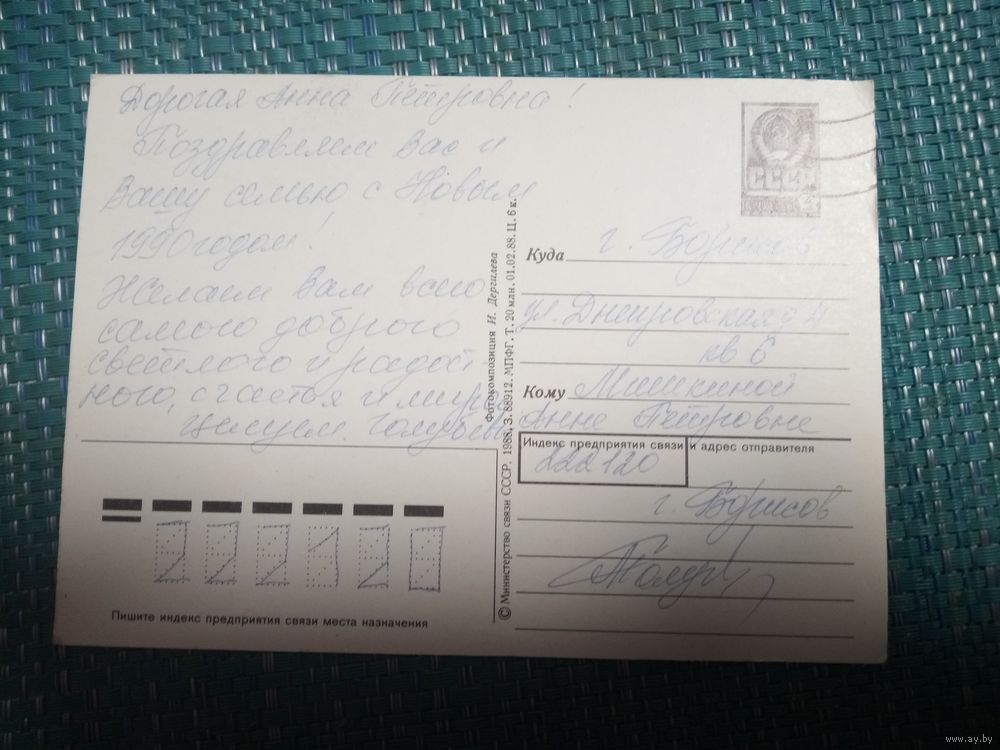 Дорогая Анна Петровна!
Поздравляем Вас и
Вашу семью с Новым
1990 годом!
Желаем Вам всего
самого доброго
светлого и радост
ного, счастья и мира
Целуем.
СССР
Куда г. Борисов
ул. Днепровская д 4
кв 6
Кому Мишкиной
Анне Петровне
Индекс предприятия связи и адрес отправителя
222120
г. Борисов
Фотокомпозиция И. Дергилева
© Министерство связи СССР, 1988. З. 88912. МПФГ. Т. 20 млн. 01.02.88. Ц. 6 к.
222120
Пишите индекс предприятия связи места назначения
www.ay.by